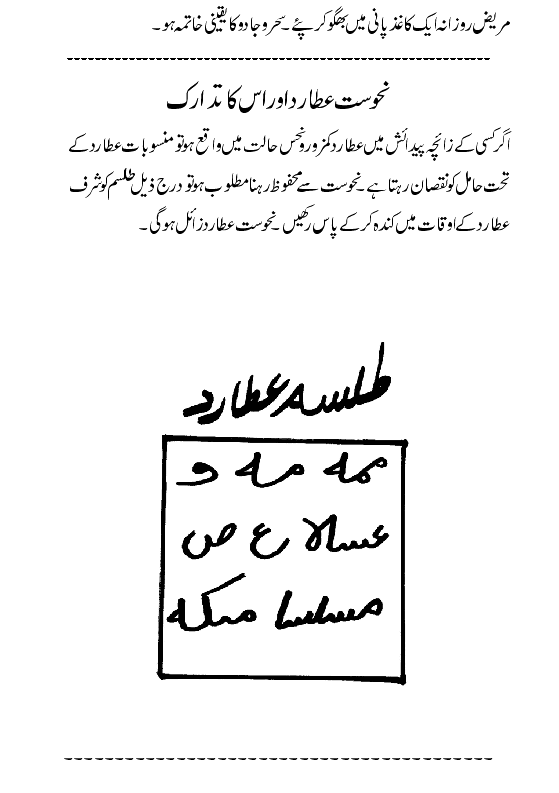 مریض روزانہ ایک کاغذ پانی میں بھگو کر پئے۔ سحر و جادو کا یقینی خاتمہ ہو۔
نحوست عطارد اور اس کا تدارک
اگر کسی کے زائچہ پیدائش میں عطارد کمزور و نحس حالت میں واقع ہو تو منسوبات عطارد کے
تحت حامل کو نقصان رہتا ہے۔ نحوست سے محفوظ رہنا مطلوب ہو تو درج ذیل طلسم کو شرف
عطارد کے اوقات میں کندہ کر کے پاس رکھیں۔ نحوست عطارد زائل ہوگی۔
طلسم عطارد
ممہ مہ و
ع ص